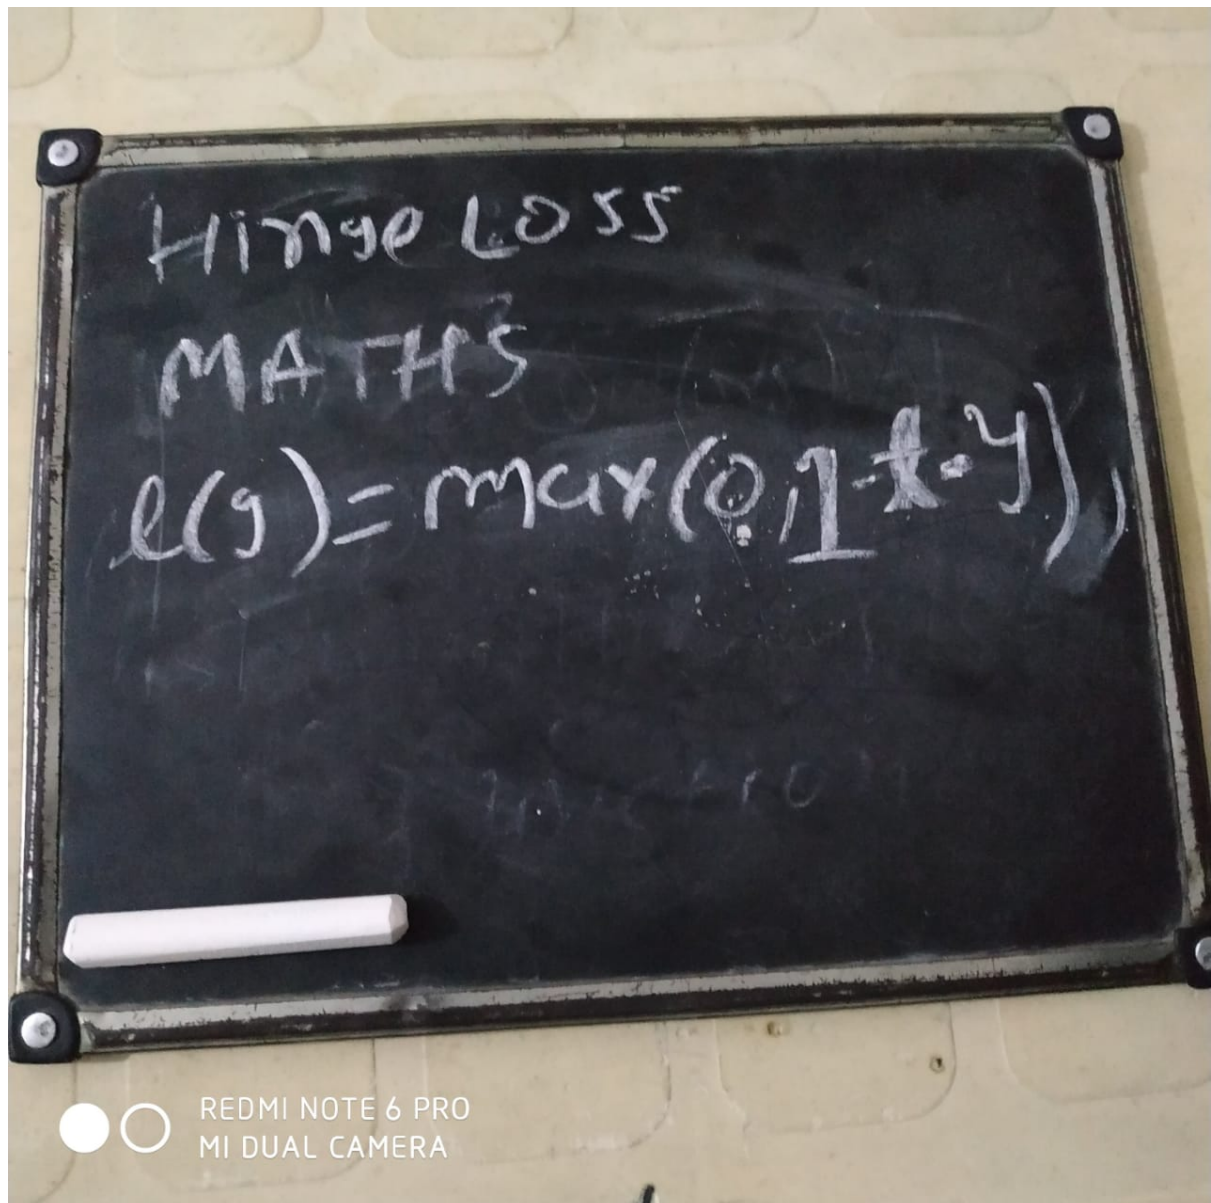 Hinge LOSS
MATHS
l(y)=max(0,1-t.y),
REDMI NOTE 6 PRO
MI DUAL CAMERA